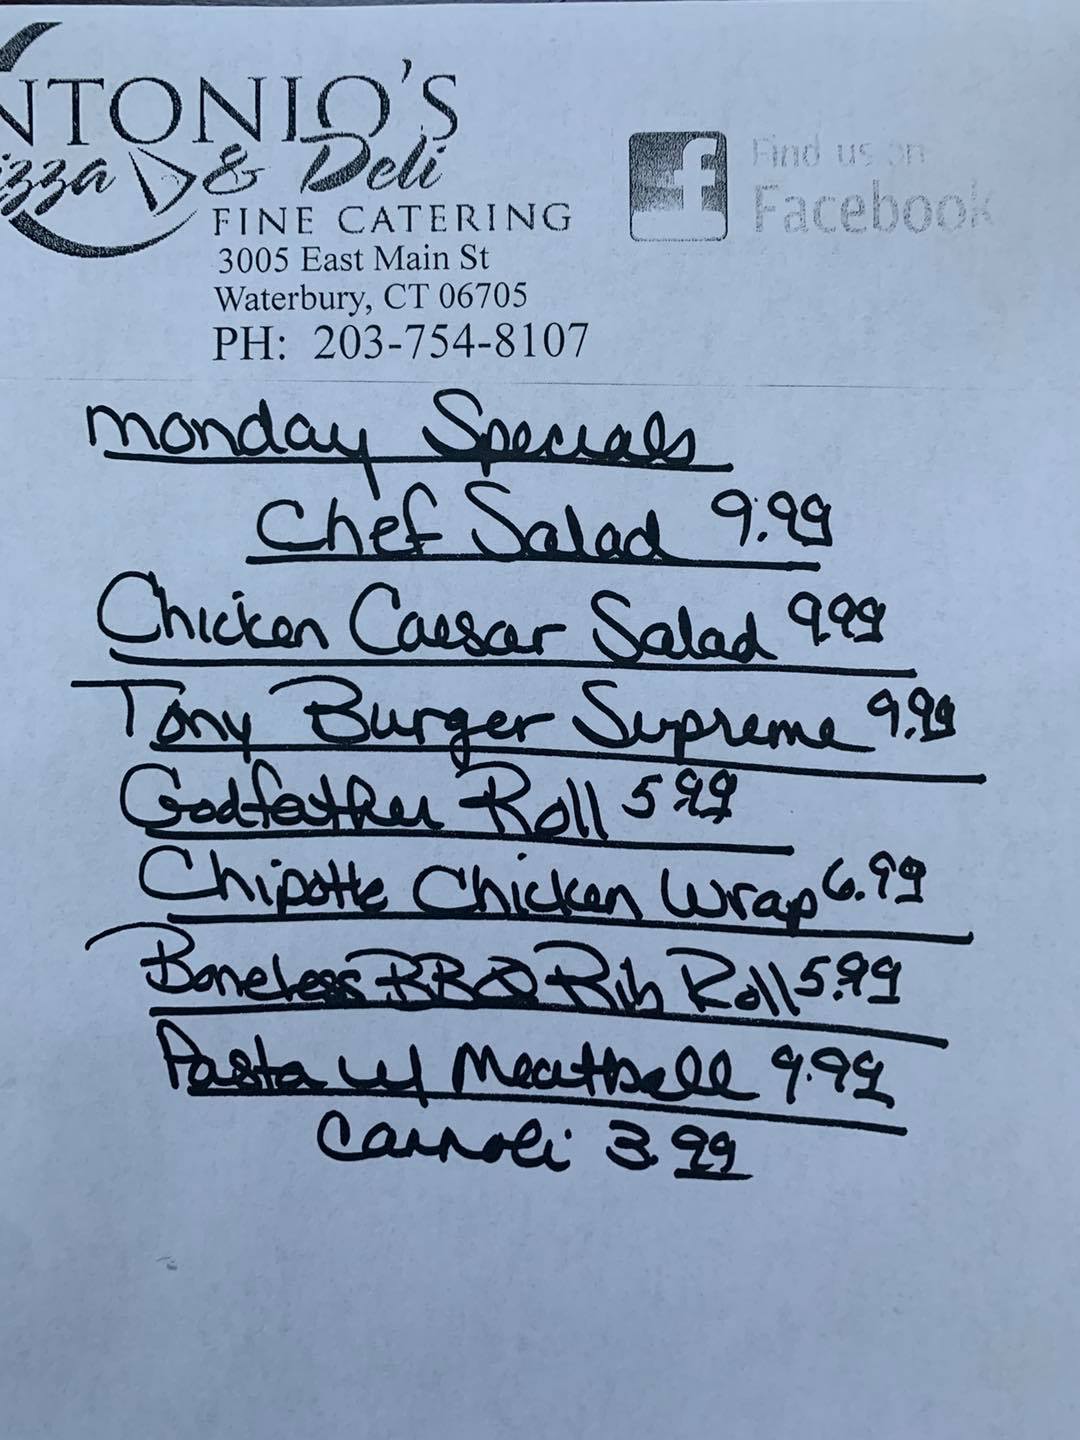 NTONIO'S
izza & Deli
FINE CATERING
3005 East Main St
Waterbury, CT 06705
PH: 203-754-8107
Find us on
Facebook
Monday Specials
Chef Salad 9.99
Chicken Caesar Salad 999
Tony Burger Supreme 9.99
Godfather Roll 5 99
Chipotle Chicken Wrap 6.99
Boneless BBQ Rib Roll 5.99
Pasta w/ Meatball 9.99
Cannoli 3.99